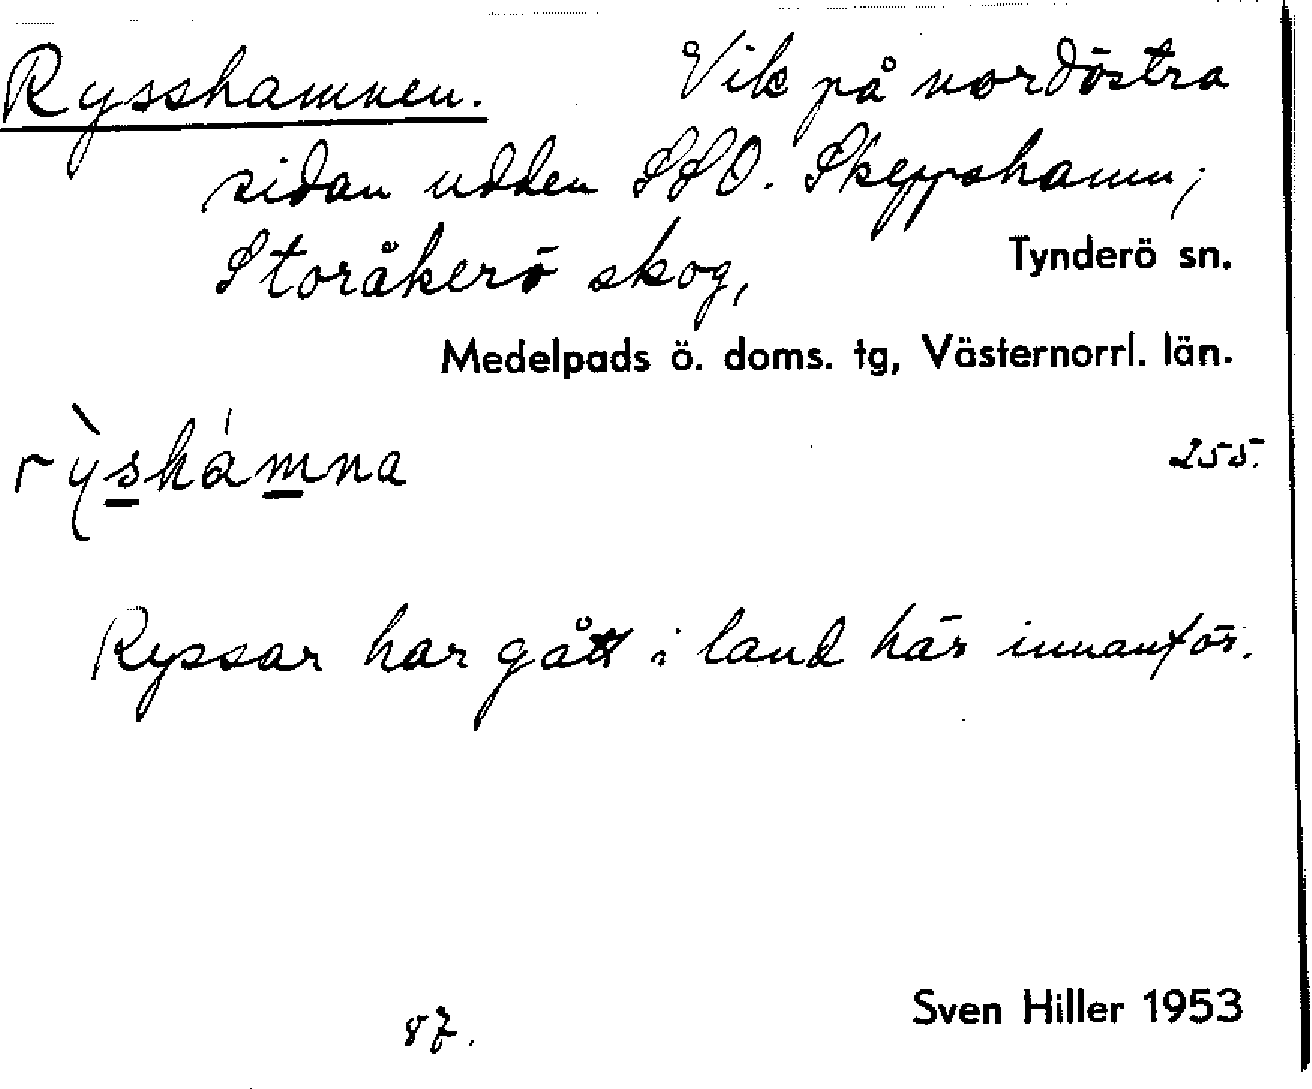 Rysshamnen. Vik på nordöstra
sidan udden SSO. Skeppshamn,
Storåkerö skog, Tynderö sn.
Medelpads ö. doms. tg, Västernorrl. län.
rỳshámna 255.
Ryssar har gått i land här innanför.
87. Sven Hiller 1953